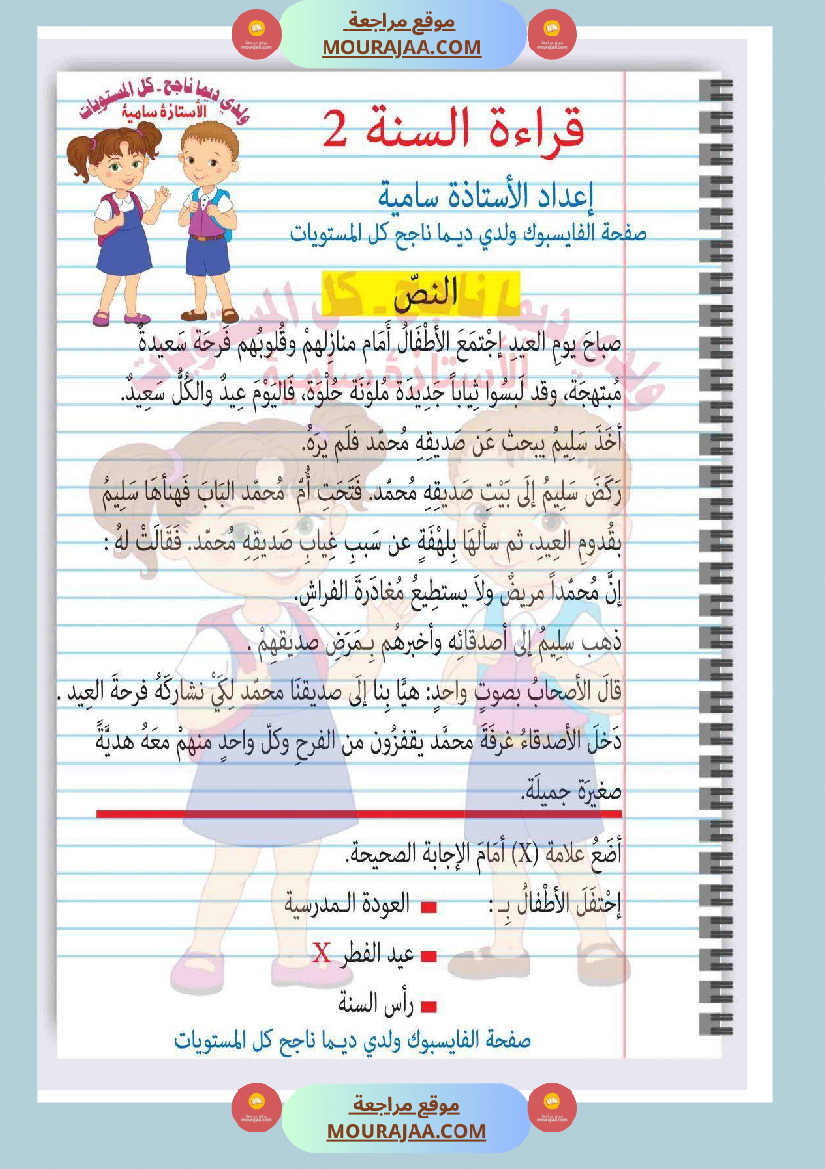 موقع مراجعة
MOURAJAA.COM
ولدي ديما ناجح - كل المستويات
الأستاذة سامية
قراءة السنة 2
إعداد الأستاذة سامية
صفحة الفايسبوك ولدي ديـما ناجح كل المستويات
النصّ
صباحَ يومِ العيدِ إجْتمَعَ الأطْفَالُ أَمَام منازِلِهمْ وقُلوبُهم فَرحَة سَعيدةٌ
مُبتهجَة، وقد لَبسُوا ثِياباً جَدِيدَة مُلوّنَة حُلْوَة، فَاليَوْمَ عِيدٌ والكُلُّ سَعِيدٌ.
أخَذَ سَلِيمُ يبحث عَن صَديقِهِ مُحمّد فلَم يرَهُ.
رَكَضَ سَلِيمُ إلَى بَيْتِ صَديقِهِ مُحمّد. فَتَحَتِ أُمّ مُحمّد البَابَ فَهنأهَا سَلِيمُ
بقُدومِ العِيدِ، ثم سألهَا بِلهْفَةٍ عن سَببِ غِيابِ صَديقِهِ مُحمّد. فَقَالَتْ لهُ :
إنَّ مُحمّداً مريضٌ ولاَ يستطِيعُ مُغادَرةَ الفراشِ.
ذهب سلِيمُ إلى أصدقائِه وأخبرهُم بِـمَرَضِ صديقهِمْ .
قالَ الأصحابُ بصوتٍ واحدٍ: هيَّا بِنا إلَى صديقنَا محمّد لِكَيْ نشاركَهُ فرحةَ العِيد .
دَخلَ الأصدقاءُ غرفَةَ محمَّد يقفزُون من الفرحِ وكلّ واحدٍ منهمْ معَهُ هديَّةً
صغيرَة جميلَة.
أضَعُ علامة (X) أمَامَ الإجابة الصحيحة.
إحْتفَلَ الأطْفالُ بِـ : العودة الـمدرسية
عيد الفطر X
رأس السنة
صفحة الفايسبوك ولدي ديـما ناجح كل المستويات
موقع مراجعة
MOURAJAA.COM